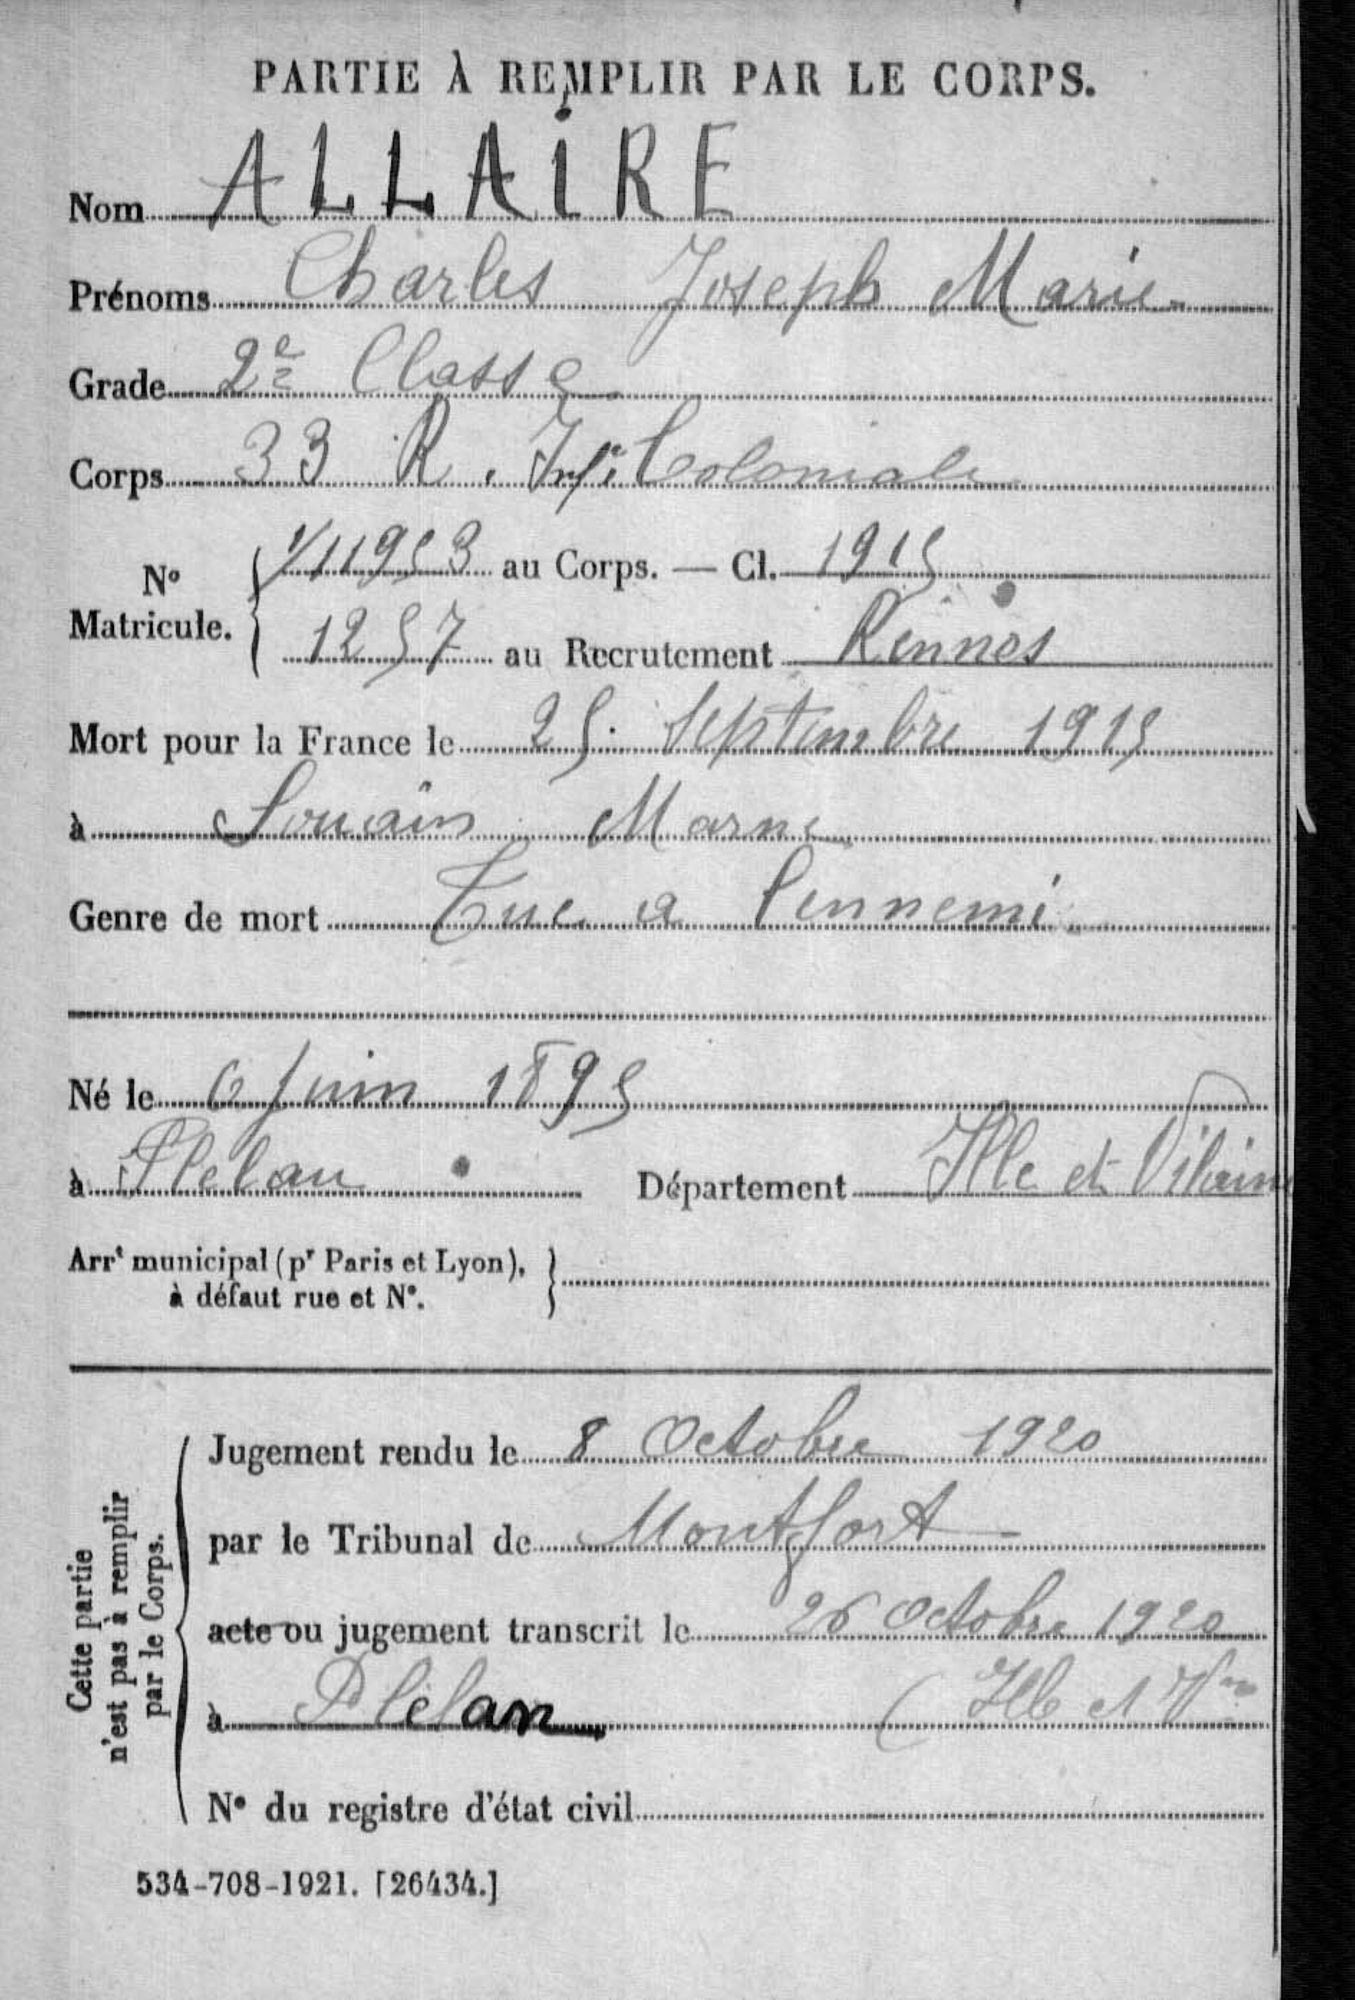 PARTIE À REMPLIR PAR LE CORPS.
Nom ALLAIRE
Prénoms Charles Joseph Marie
Grade 2e Classe
Corps 33 R. Inf. Coloniale
No Matricule. 1/11953 au Corps. — Cl. 1915
1257 au Recrutement Rennes
Mort pour la France le 25 Septembre 1915
à Souain Marne
Genre de mort Tué a l'ennemi
Né le 6 Juin 1895
à Plelan Département Ille et Vilaine
Arrt municipal (pr Paris et Lyon),
à défaut rue et N°.
Cette partie
n'est pas à remplir
par le Corps.
Jugement rendu le 8 Octobre 1920
par le Tribunal de Montfort
acte ou jugement transcrit le 26 Octobre 1920
à Plelan (Ille et Vne
N° du registre d'état civil
534-708-1921. [26434.]